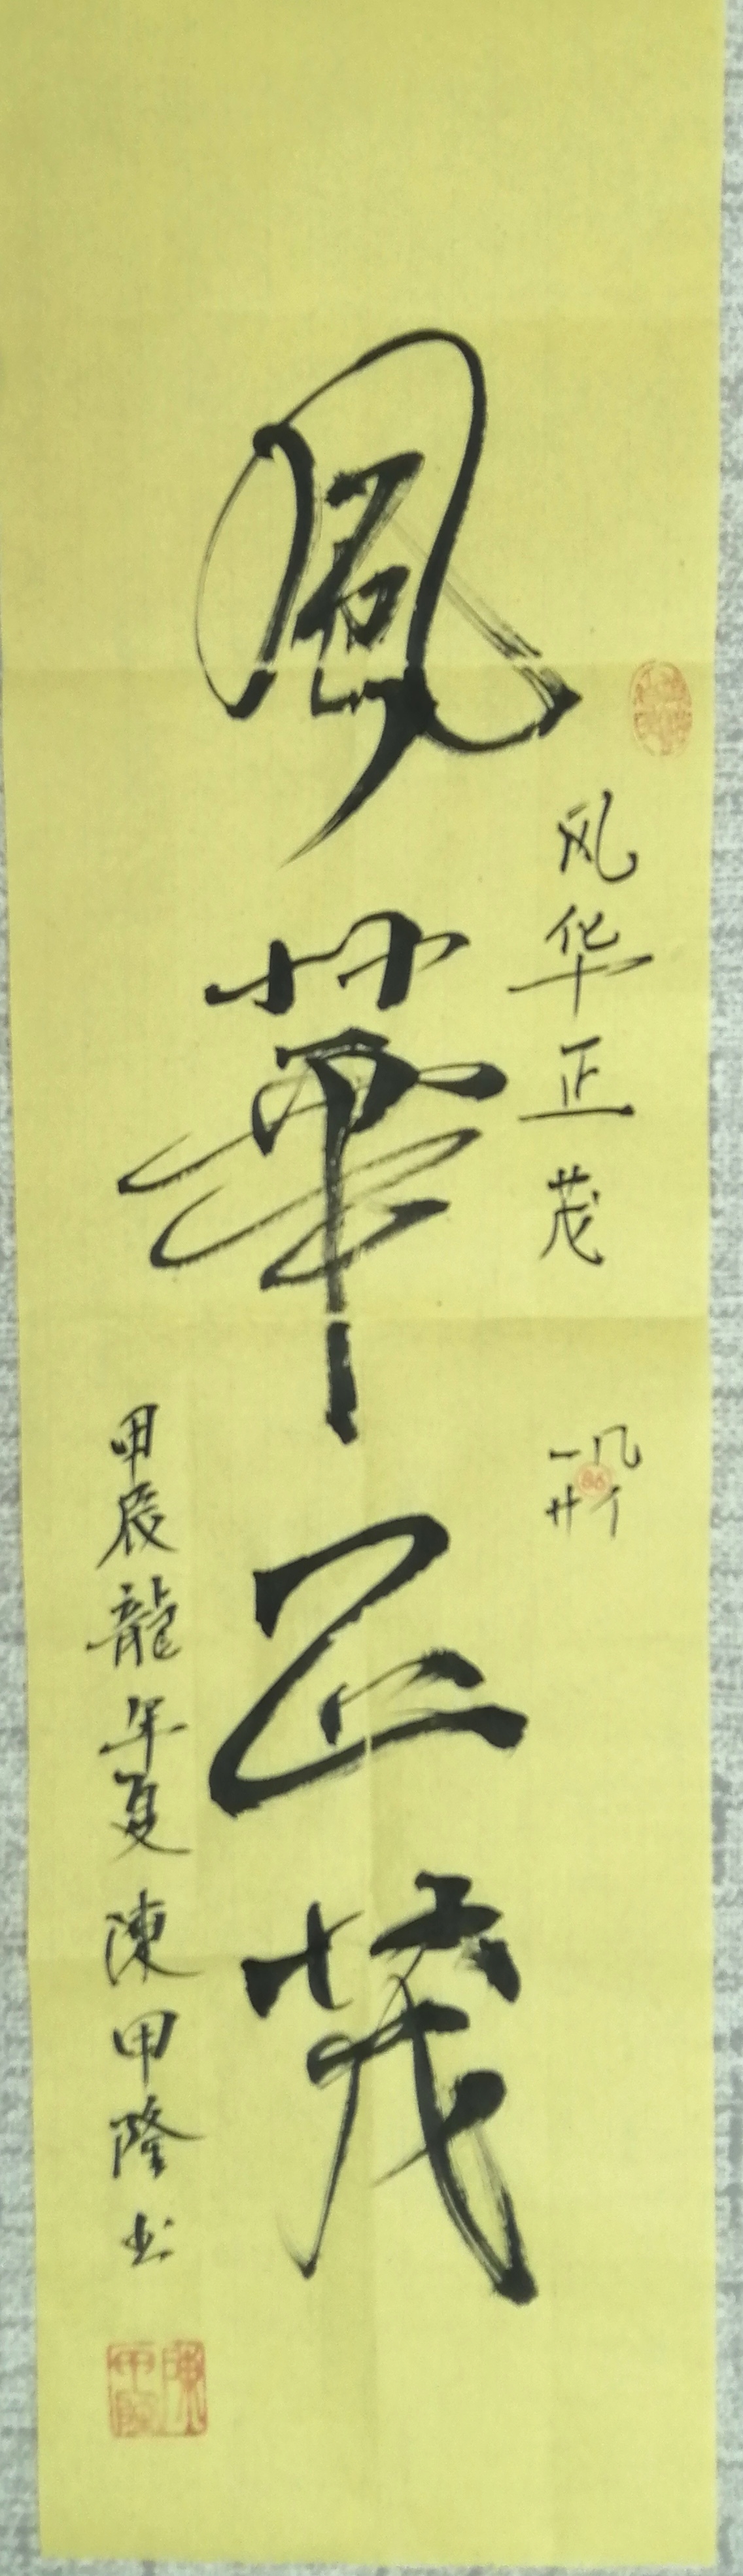 風華正茂
风华正茂
86
甲辰龍年夏陳甲隆书